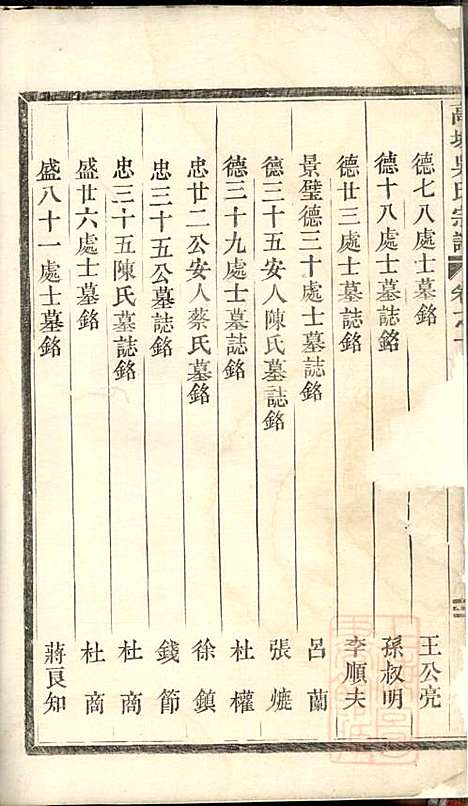 吳氏宗譜
德七八處士墓誌銘 王公亮
德十八處士墓誌銘 孫叔明
德廿三處士墓誌銘 李順夫
景璧德三十處士墓誌銘 呂蘭
德三十五安人陳氏墓誌銘 張熝
德三十九處士墓誌銘 杜權
忠廿二公安人蔡氏墓銘 徐鎮
忠三十五公墓誌銘 錢節
忠三十五陳氏墓誌銘 杜商
盛廿六處士墓銘 杜商
盛八十一處士墓銘 蔣良知